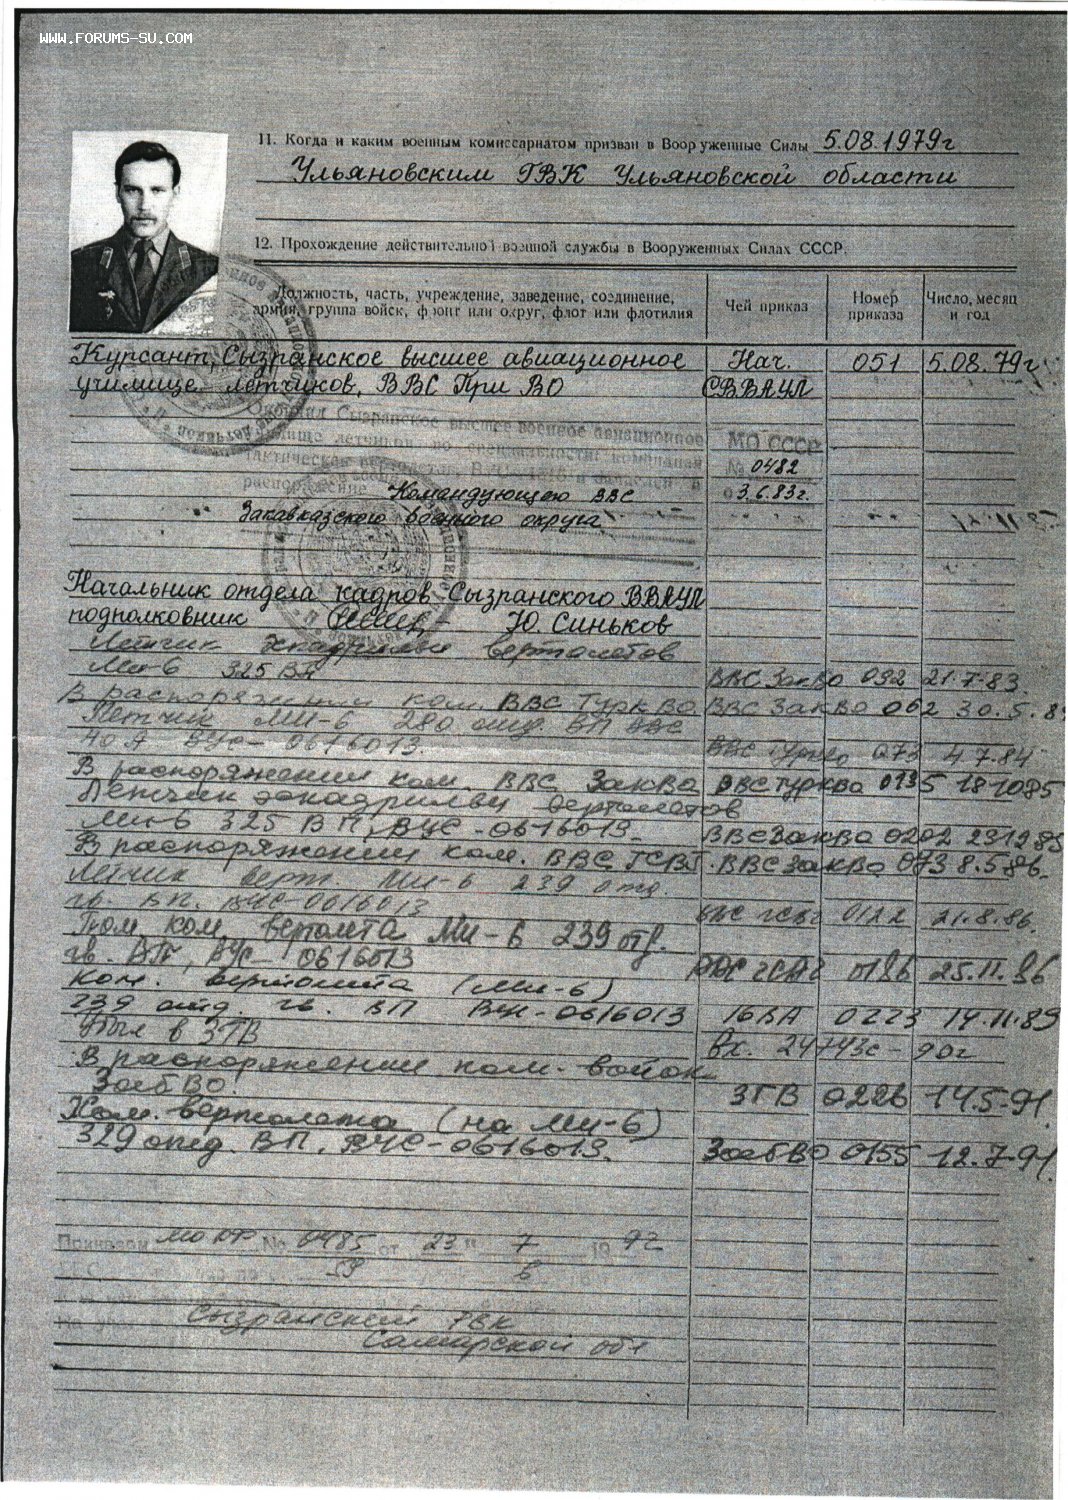 WWW.FORUMS-SU.COM
11. Когда и каким военным комиссариатом призван в Вооруженные Силы 5.08.1979г
Ульяновским ГВК Ульяновской области
12. Прохождение действительной военной службы в Вооруженных Силах СССР.
Должность, часть, учреждение, заведение, соединение,
армия, группа войск, фронт или округ, флот или флотилия
Чей приказ
Номер
приказа
Число, месяц
и год
Курсант, Сызранское высшее авиационное Нач. 051 5.08.79г.
училище летчиков, ВВС При ВО СВВАУЛ
Окончил Сызранское высшее военное авиационное
училище летчиков по специальности командная МО СССР
тактическая вертолетов, № 0482
распоряжение Командующего ВВС 3.6.83г.
Закавказского военного округа
Начальник отдела кадров Сызранского ВВАУЛ
подполковник Ю. Синьков
Летчик эскадрильи вертолетов
Ми-6 325 ВП ВВС ЗакВО 092 21.7.83.
В распоряжении ком. ВВС ТуркВО ВВС ЗакВО 062 30.5.84
Летчик Ми-6 280 отд. ВП ВВС
40 А ВУС-0616013. ВВС ТуркВО 073 4.7.84
В распоряжении ком. ВВС ЗакВО ВВС ТуркВО 0135 18.10.85
Летчик эскадрильи вертолетов
Ми-6 325 ВП, ВУС-0616013. ВВС ЗакВО 0202 23.12.85
В распоряжении ком. ВВС ГСВГ. ВВС ЗакВО 073 8.5.86.
Летчик верт. Ми-6 239 отд.
гв. ВП. ВУС-0616013 ВВС ГСВГ 0122 21.8.86.
Пом. ком. вертолета Ми-6 239 отд.
гв. ВП, ВУС-0616013 ВВС ГСВГ 0186 25.11.86
Ком. вертолета (Ми-6)
239 отд. гв. ВП ВУС-0616013 16 ВА 0223 14.11.89
Был в ЗГВ вх. 24743с-90г
В распоряжение ком. войск
ЗабВО. ЗГВ 0226 14.5-91.
Ком. вертолета (на Ми-6)
329 отд. ВП, ВУС-0616013. ЗабВО 0155 12.7.91.
Приказом МО РФ № 0485 от 23 " 7 19 92
59 6
Сызранский ГВК
Самарской обл